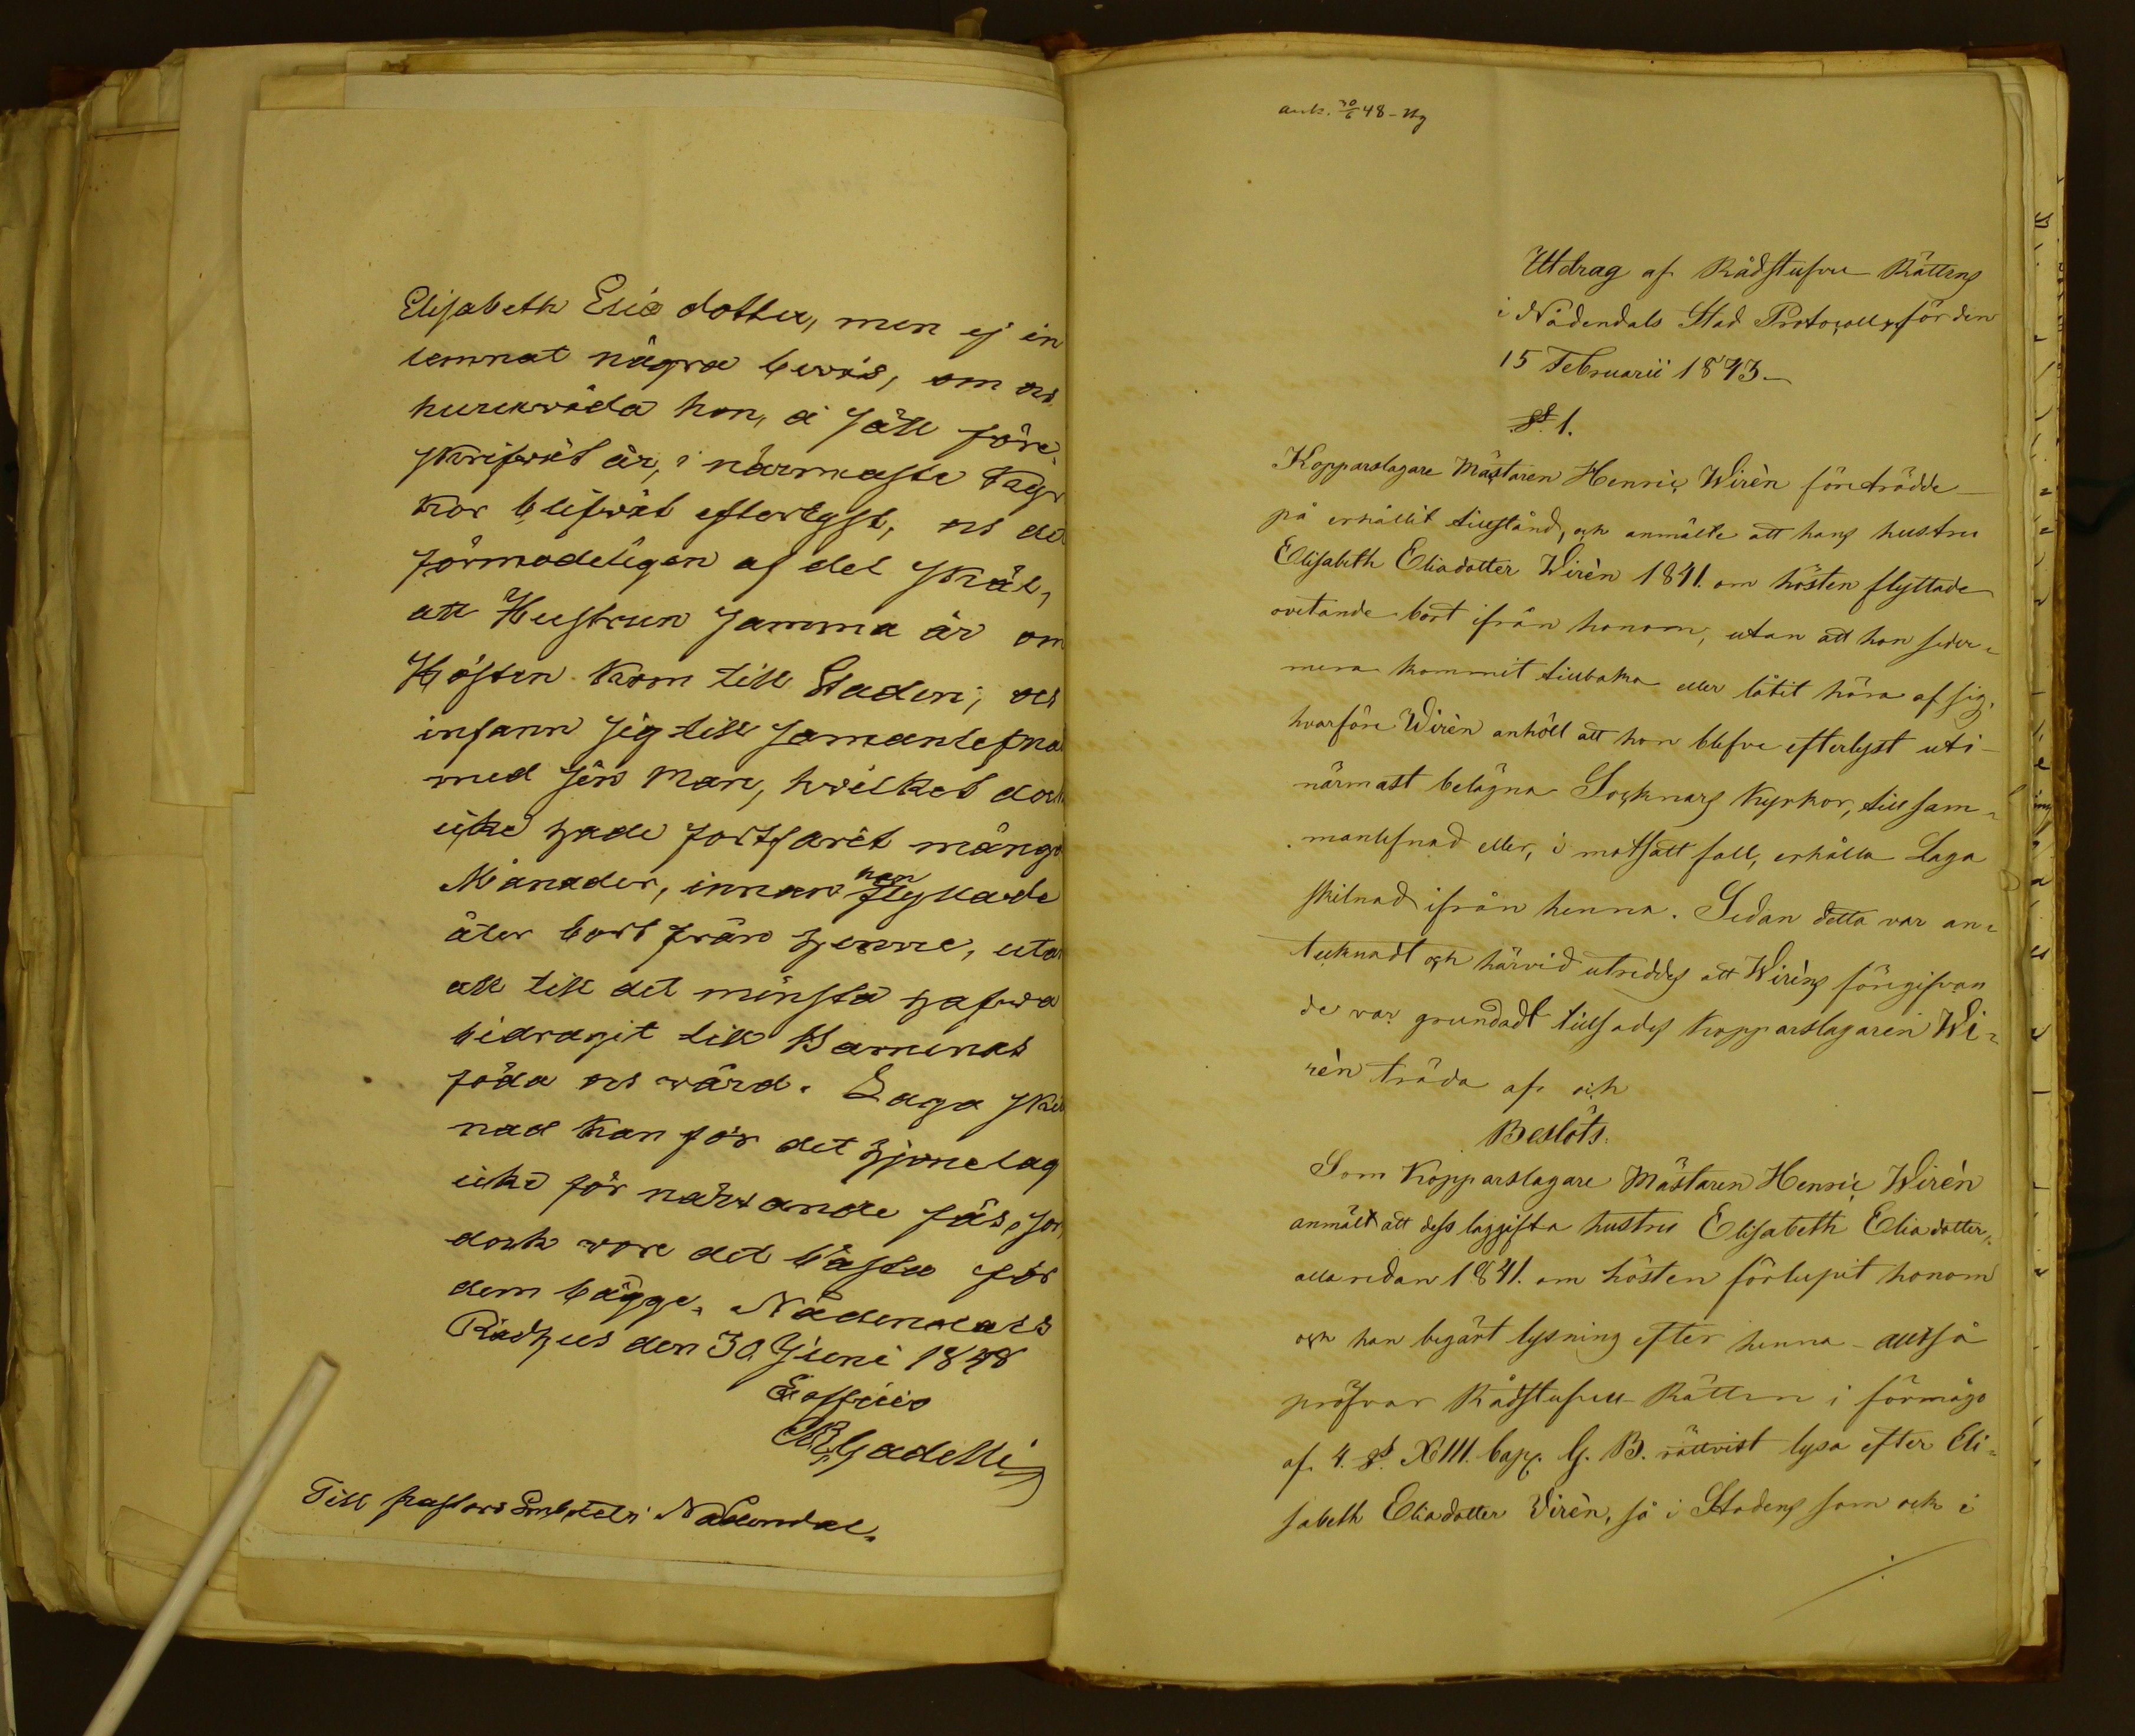 Elisabeth Eliædotter, men ej in
lemnat några bewis, om och
huruwida hon, å sätt före
skrifwit är, i närmaste Kyr
kor blifwit efterlyst, och det
förmodeligen af det skäl,
att Hustrun samma år om
Hösten kom till Staden, och
infann sig till samanlefnad
med sin Man, hwilket dock
icke hade fortfarit många
Månader, innan han flyttade
åter bort från henne, utan
att till det minsta hafwa
bidragit till Barnens
föda och wård. Laga skil
nad kan för det hjonelag
icke för närwarande fås, som
dock wore det bästa för
dem bägge. Nådendals
Rådhus den 30 Juni 1848
Ex officio
Till Pastors Embetet i Nådendal.
ank. 30/6 48 - Hg
Utdrag af Rådstufvu Rättens
i Nådendals Stad Protocoll för den
15 Februarii 1843_
§ 1.
Kopparslagare Mästaren Henric Wirèn företrädde
på erhållit tillstånd, och anmälte att hans hustru
Elisabeth Eliædotter Wirèn 1841. om hösten flyttade
ovetande bort ifrån honom, utan att hon seder-
mera kommit tillbaka eller låtit höra af sig,
hvarföre Wirèn anhöll att hon blefve efterlyst uti
närmast belägna Socknars Kyrkor, till sam-
manlefnad eller, i motsatt fall, erhålla Laga
skilnad ifrån henna. Sedan detta var an-
tecknadt och härvid utreddes att Wirèns föregifvan
de var grundadt tillsades Kopparslagaren Wi-
rèn träda af och
Beslöts:
Som Kopparslagare Mästaren Henric Wirèn
anmält att dess laggifta hustru Elisabeth Eliædotter,
allaredan 1841. om hösten förlupit honom
och han begärt lysning efter henna - altså
pröfvar Rådstufvu Rätten i förmågo
af 4. § XIII. Cap. G. B. rättvist lysa efter Eli-
sabeth Eliædotter Wirèn, så i Stadens som ock i
./.